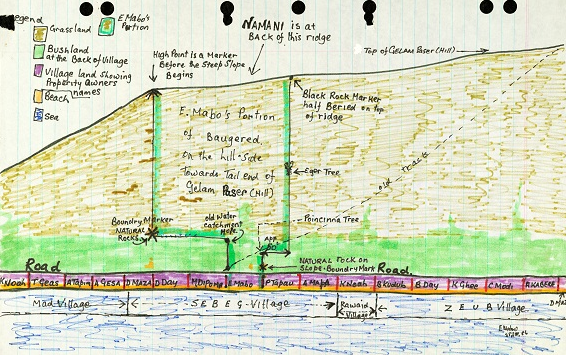 Legend
Grassland
E Mabo's
Portion
Bushland
at the Back of Village
Village land showing
Property Owners
names
Beach
Sea
NAMANI is at
Back of this ridge
High Point is a Marker
Before the Steep Slope
Begins
Top of Gelam Paser (Hill)
Black Rock Marker
half Beried on top
of ridge
E. Mabo's Portion
of Baugered,
on the hill-side
Towards Tail end of
Gelam Paser (Hill)
Eger Tree
old track
Boundry Marker
NATURAL
Rocks
old water
catchment
Hole
Poincinna Tree
APP.
50
NATURAL Rock on
Slope-Boundry Mark
Road
Road
K Noah
T Geas
A Tapim
A GESA
D MAZA
D Day
M Dipoma
E Mabo
P Tapau
K Noah
B Day
K Ghee
C Modi
R KABERE
Mad-Village
SEBEG-Village
Rawaid
Village
ZEUB Village